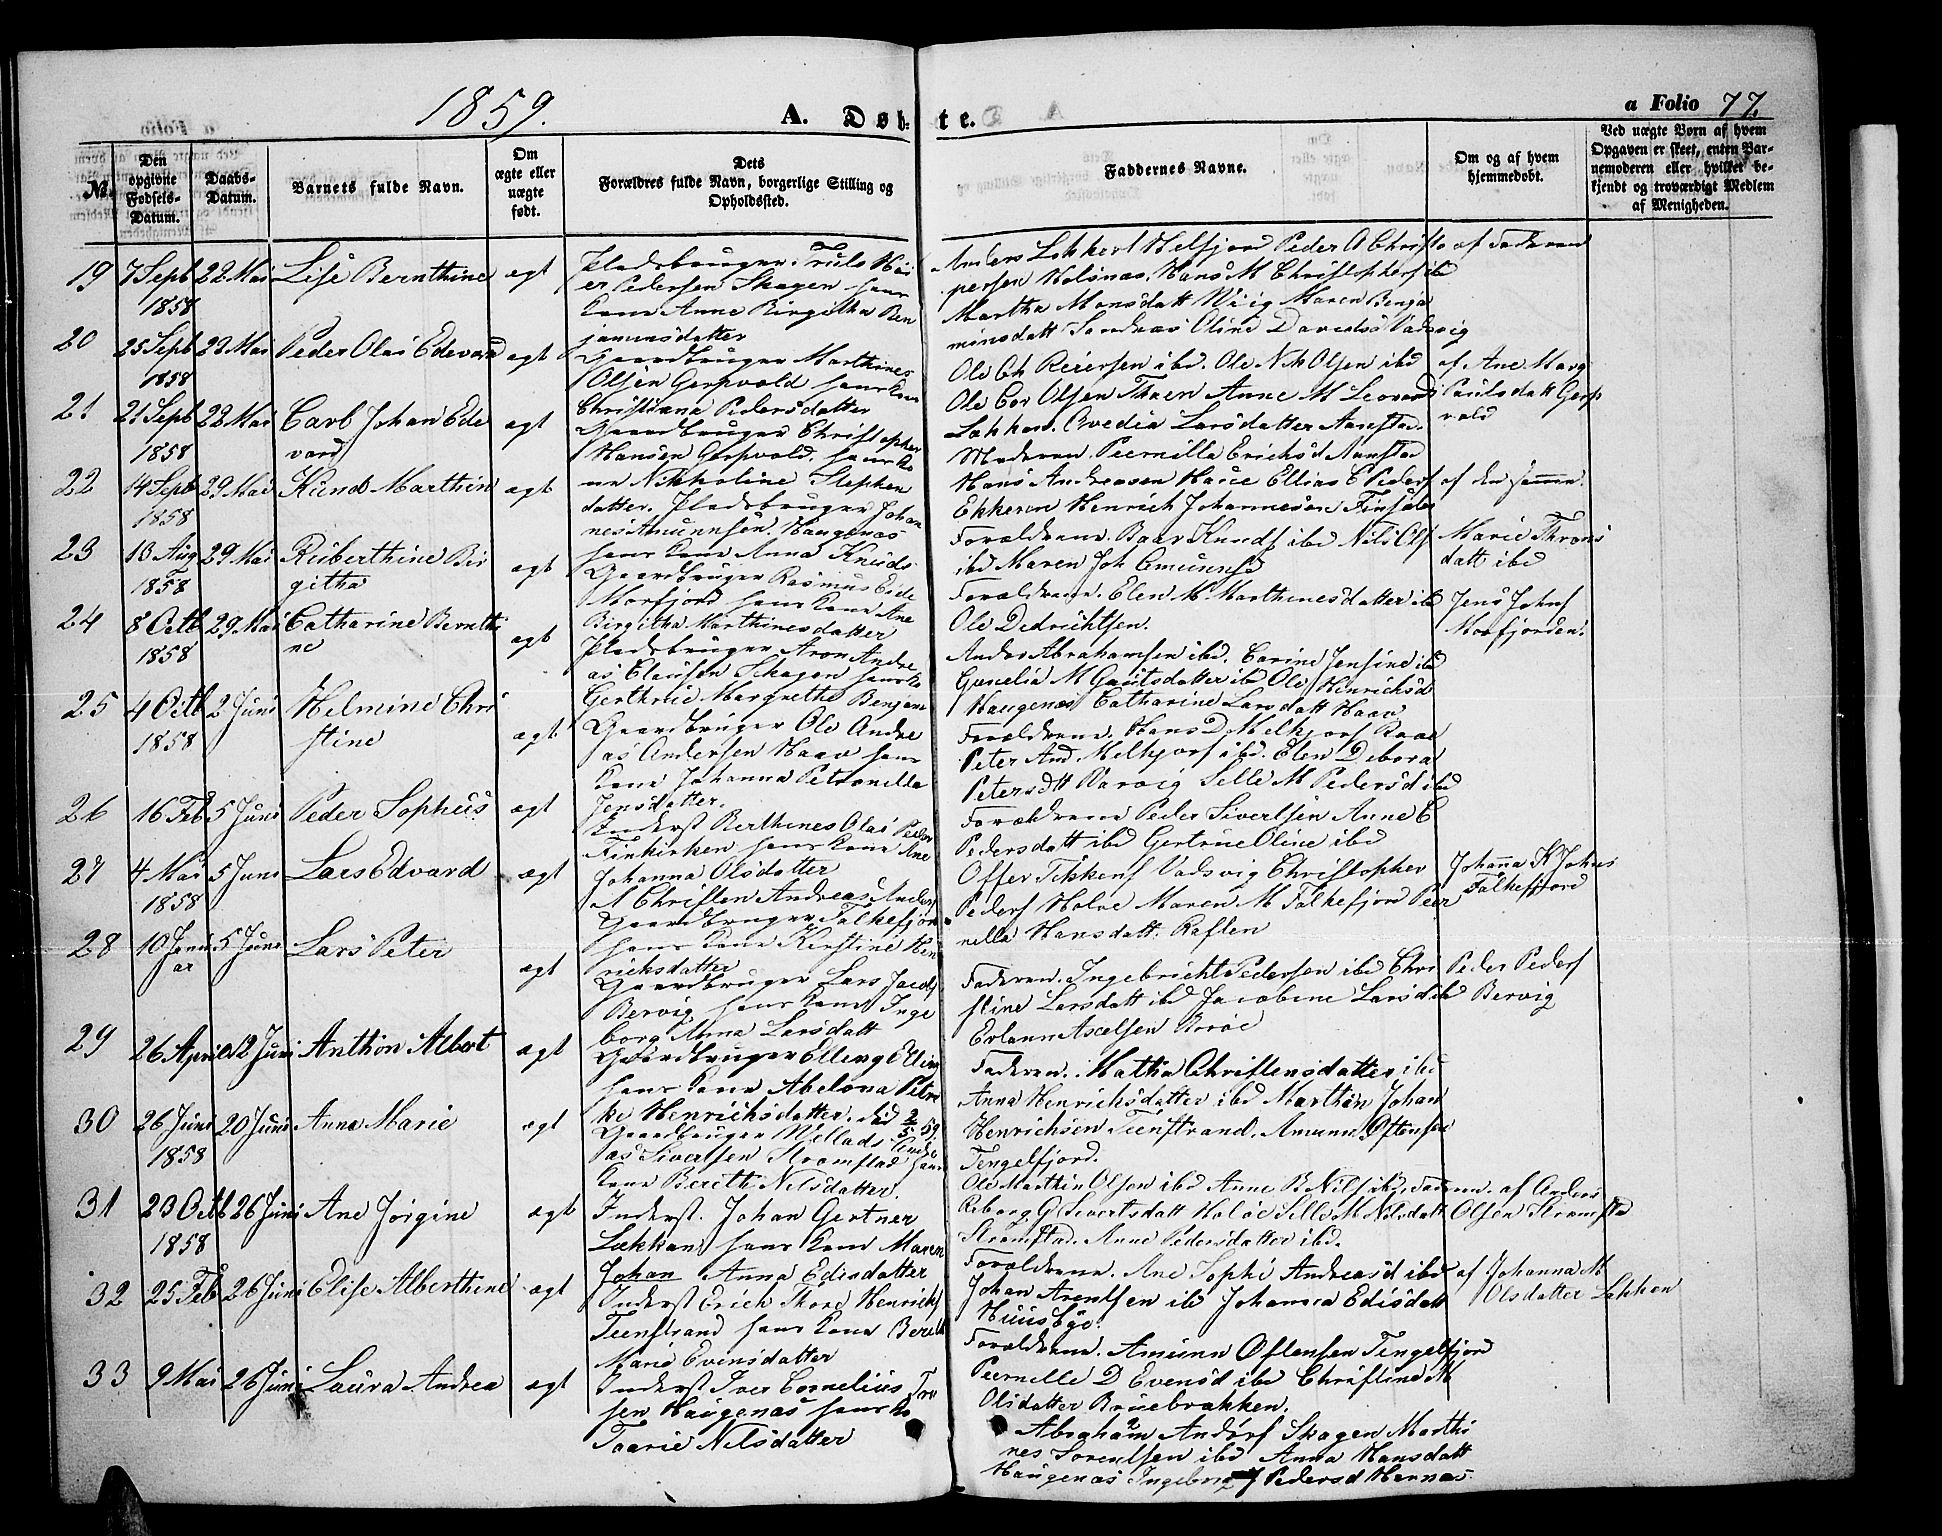 1859.
A. Døb-
te.
a Folio 77.
No.
Den opgivne Fødsels-Datum.
Daabs-Datum.
Barnets fulde Navn.
Om ægte eller uægte født.
Dets Forældres fulde Navn, borgerlige Stilling og Opholdssted.
Faddernes Navne.
Om og af hvem hjemmedøbt.
Ved uægte Børn af hvem Opgaven er skeet, enten Barnemoderen eller hvilket bekjendt og troværdigt Medlem af Menigheden.
19 7 Sept 1858 22 Mai Lise Bernthine ægt
Pladsbruger Truls
er Pedersen Skagen hans
Kone Anne Birgitha Ben
jaminsdatter
Anders Løkkert Helfjord Peder A Christo
persen Holsnæs. Hans M Christophers ibd
Martha Monsdatt Maren Benja
minsdatt Sandnæs Oline Davids Vadsvig
af Faderen
20 25 Sept 1858 22 Mai Peder Olai Edevard ægt
Gaardbruger Marthines
Olsen Gospvold hans Kone
Christiana Pedersdatter
Ole Ch Reiersen ibd. Ole N M Olsen ibd
Ole Cor Olsen Anne M Leonard
Løkken. Ovedia Larsdatter
af Ane Marg
Paulsdatt Gosp
vold
21 21 Sept 1858 22 Mai Carl Johan Ede
vard
ægt
Gaardbruger Christopher
Hansen Gospvold. hans Ko
ne Nikkoline Stephen
datter.
Moderen Peernilla Erichsd
Hans Andreasen Ellias C Peders
Ekkeren Henrich Johannesen Finsæter
af den samme.
22 14 Sept 1858 29 Mai Knud Marthin ægt
Pladsbruger Johan
nes Amunnsen. Haugenæs
hans Kone Anna Knuds
Forældrene. Baar Knuds ibd Nils Ols
ibd Maren Joh Emunns
Marie Throns
datt ibd
23 10 Aug 1858 29 Mai Ruberthine Bir
githa
ægt
Gaardbruger Rasmus Eide
Morfjord hans Kone Ane
Birgitha Marthinesdatter
Forældrene. Elen M. Marthinesdatter ibd
Ole Dedrichtsen.
Jens Johns
Morfjorden.
24 8 Octb 1858 29 Mai Catharine Bernthi
ne
ægt
Pladsbruger Aron Andre
as Clausen Skagen hans Ko
Gerthrue Margrethe Benjam
Anders Abrahamsen ibd. Carine Jensine ibd
Cornelia M Gautsdatter ibd Ole Henrichsd
Haugenæs Catharine Larsdatt Haav
25 4 Octb 1858 2 Juni Helmine Chri
stine
ægt
Gaardbruger Ole Andre
as Andersen Haav hans
Kone Johanna Petronella
Jensdatter.
Forældrene. Hans D Melkjorf
Peter And. Melkjorf ibd. Elen Debora
Petersdtt Barvig Sille M Pedersd ibd
26 16 Feb 5 Juni Peder Sophus ægt
Inderst Berthines Olai Peder
Finkirken hans Kone Ane
Johanna Olsdatter
Forældrene Peder Sivertsen Anne C
Pedersdatt ibd Gertrue Oline ibd
27 4 Mai 1858 5 Juni Lars Edvard ægt
N Christen Andreas Anders
Gaardbruger Falkefjor
hans Kone Kirstine Hen
richsdatter
Offer Tikkens Vadsvig Christopher
Peders Holve Maren M Falkefjord Peer
nella Hansdatt. Raften
Johanna K Johns
Falkefjord
28 10 Janu
ar 5 Juni Lars Peter ægt
Gaardbruger Lars Jacobs
Bervig hans Kone Inge
borg Anna Larsdatt
Faderen. Ingebricht Pedersen ibd Chri
stine Larsdatt ibd Jacobine Larsd ibd
Erlann Axelsen
Peder Peders
Bervig
29 26 April 12 Juni Anthon Albert ægt
Gaardbruger Elling Ellin
hans Kone Abelona Petri
ke Henrichsdatter. død 2/5 59.
Faderen. Mathia Christensdatter ibd
Anna Henrichsdatter ibd Marthin Johan
Henrichsen Teenstrand. Amunn Oftensen
Tengelfjord.
30 26 Juni 1858 20 Juni Anna Marie ægt
Gaardbruger Mellads
as Sivertsen Stromstad hans
Kone Berith Nilsdatter.
Ole Marthin Olsen ibd Anne B Nils ibd. Faderen.
Reborg G Sivertsdatt Holoe Sille M Nilsdatt
Stromstad. Anne Pedersdatter ibd.
af Anders
Olsen Stromsta
31 23 Octb 1858 26 Juni Ane Jørgine ægt
Inderst. Johan Gertner
Løkkan, hans Kone Maren
Johan Anna Edisdatter
Forældrene. Ane Sophi Andreasd ibd
Johan Arentsen ibd Johanna Edisdatt
Huusbye.
af Johanna M
Olsdatter Løkkan
32 25 Feb 26 Juni Elise Alberthine ægt
Inderst Erich Thore Henrichs
Teenstrand hans Kone Bereth
Marie Evensdatter
Forældrene. Amunn Oftensen Tengelfjord
Peernelle D Evensd ibd Christine M
Olsdatter Bruebrækken.
33 9 Mai 26 Juni Laura Andrea ægt
Inderst Iver Cornelius Iver
sen Haugenæs hans Ko
Taarie Nilsdatter
Abraham Anders Skagen Marthi
nes Sorentsen ibd Anna Hansdatt
Haugenæs Ingebrig J Pedersd Hennæs